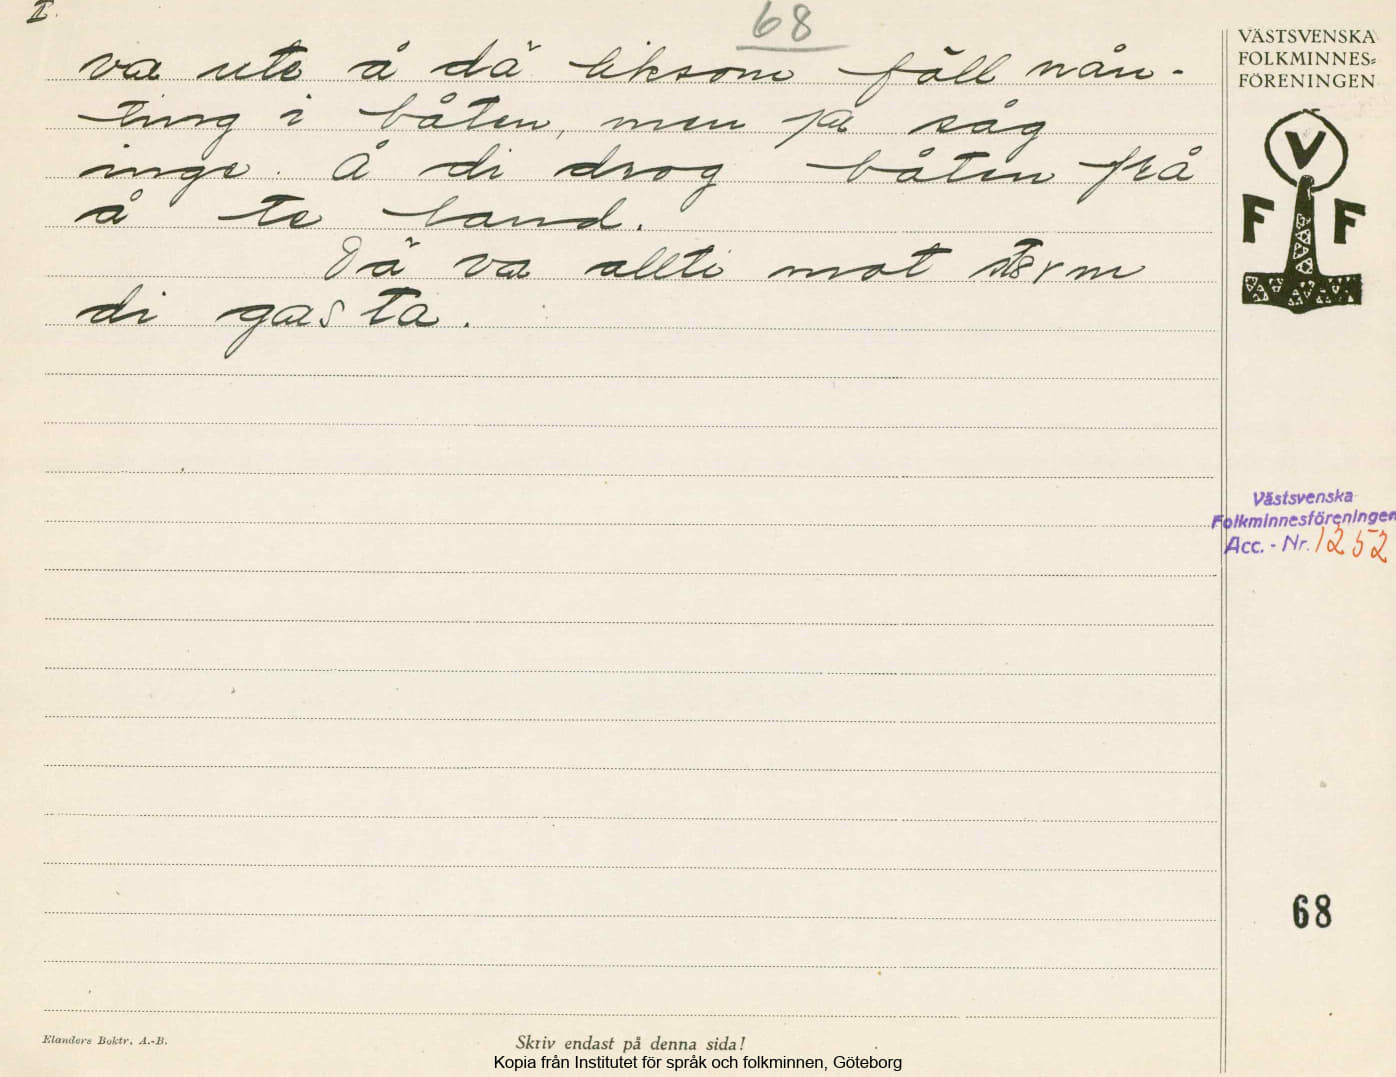 I.
68
va ute å dä liksom föll nån-
ting i båten, men ja såg
inge. Å di drog båten frå
å te land.
Dä va allti mot storm
di gasta.
VÄSTSVENSKA
FOLKMINNES=
FÖRENINGEN
V
F F
Västsvenska
Folkminnesföreningen
Acc. - Nr. 1252
68
Elanders Boktr. A.-B.
Skriv endast på denna sida!
Kopia från Institutet för språk och folkminnen, Göteborg